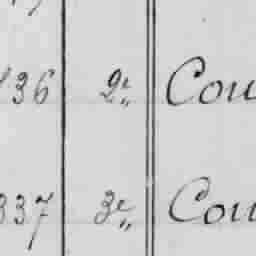 136 2e„ Cou
337 3e„ Cou